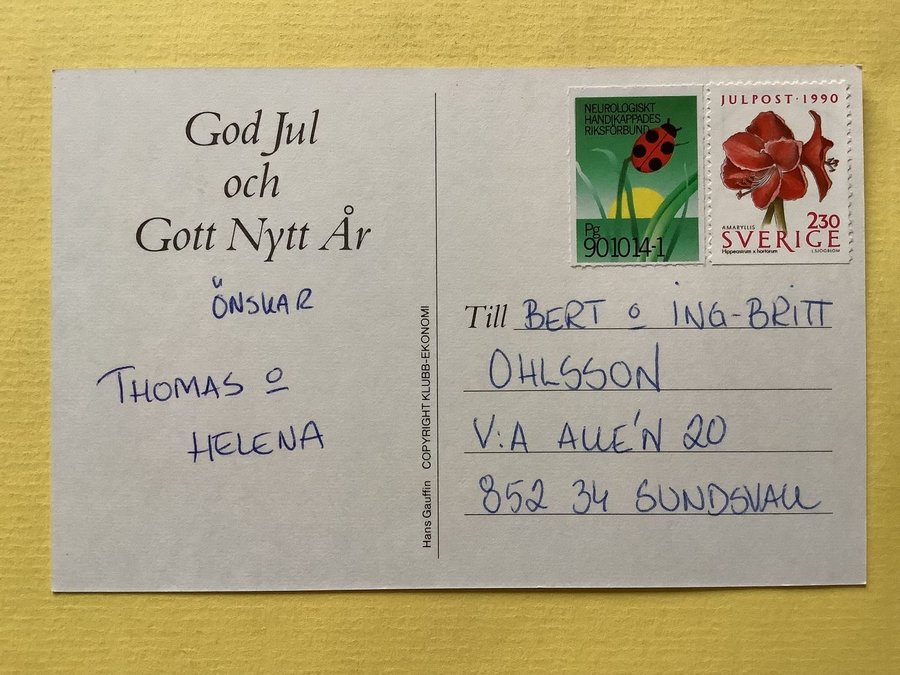 God Jul
och
Gott Nytt År
ÖNSKAR
THOMAS o
HELENA
Hans Gauffin COPYRIGHT KLUBB-EKONOMI
NEUROLOGISKT
HANDIKAPPADES
RIKSFÖRBUND
Pg
901014-1
JULPOST · 1990
230
AMARYLLIS
SVERIGE
Hippeastrum x hortorum
I. SJÖÖBLOM
Till BERT o ING-BRITT
OHLSSON
V:A ALLE'N 20
852 34 SUNDSVALL